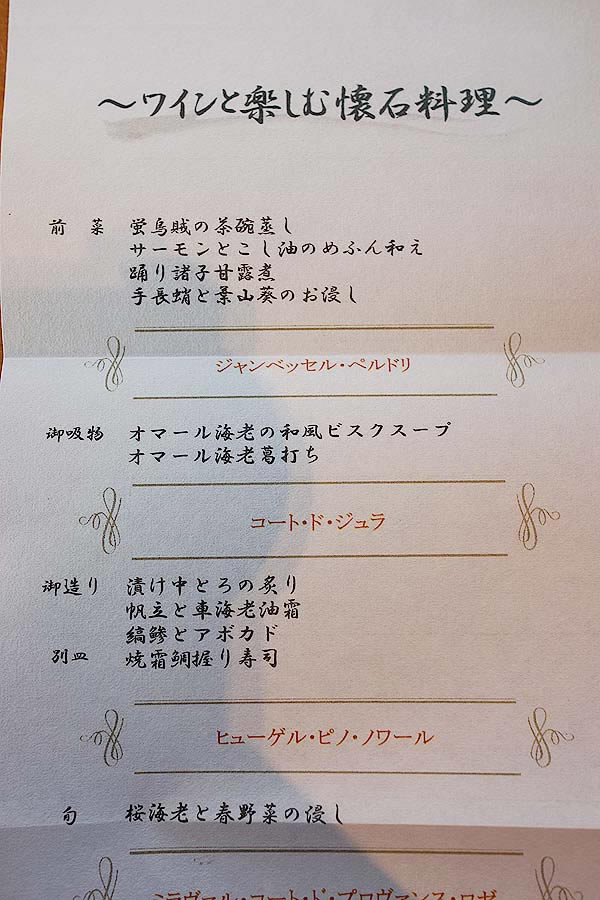 ～ワインと楽しむ懐石料理～
前菜 蛍烏賊の茶碗蒸し
サーモンとこし油のめふん和え
踊り諸子甘露煮
手長蛸と葉山葵のお浸し
ジャンベッセル・ペルドリ
御吸物 オマール海老の和風ビスクスープ
オマール海老葛打ち
コート・ド・ジュラ
御造り 漬け中とろの炙り
帆立と車海老油霜
縞鯵とアボカド
別皿 焼霜鯛握り寿司
ヒューゲル・ピノ・ノワール
旬 桜海老と春野菜の浸し
ミラヴァル・コート・ド・プロヴァンス・ロゼ